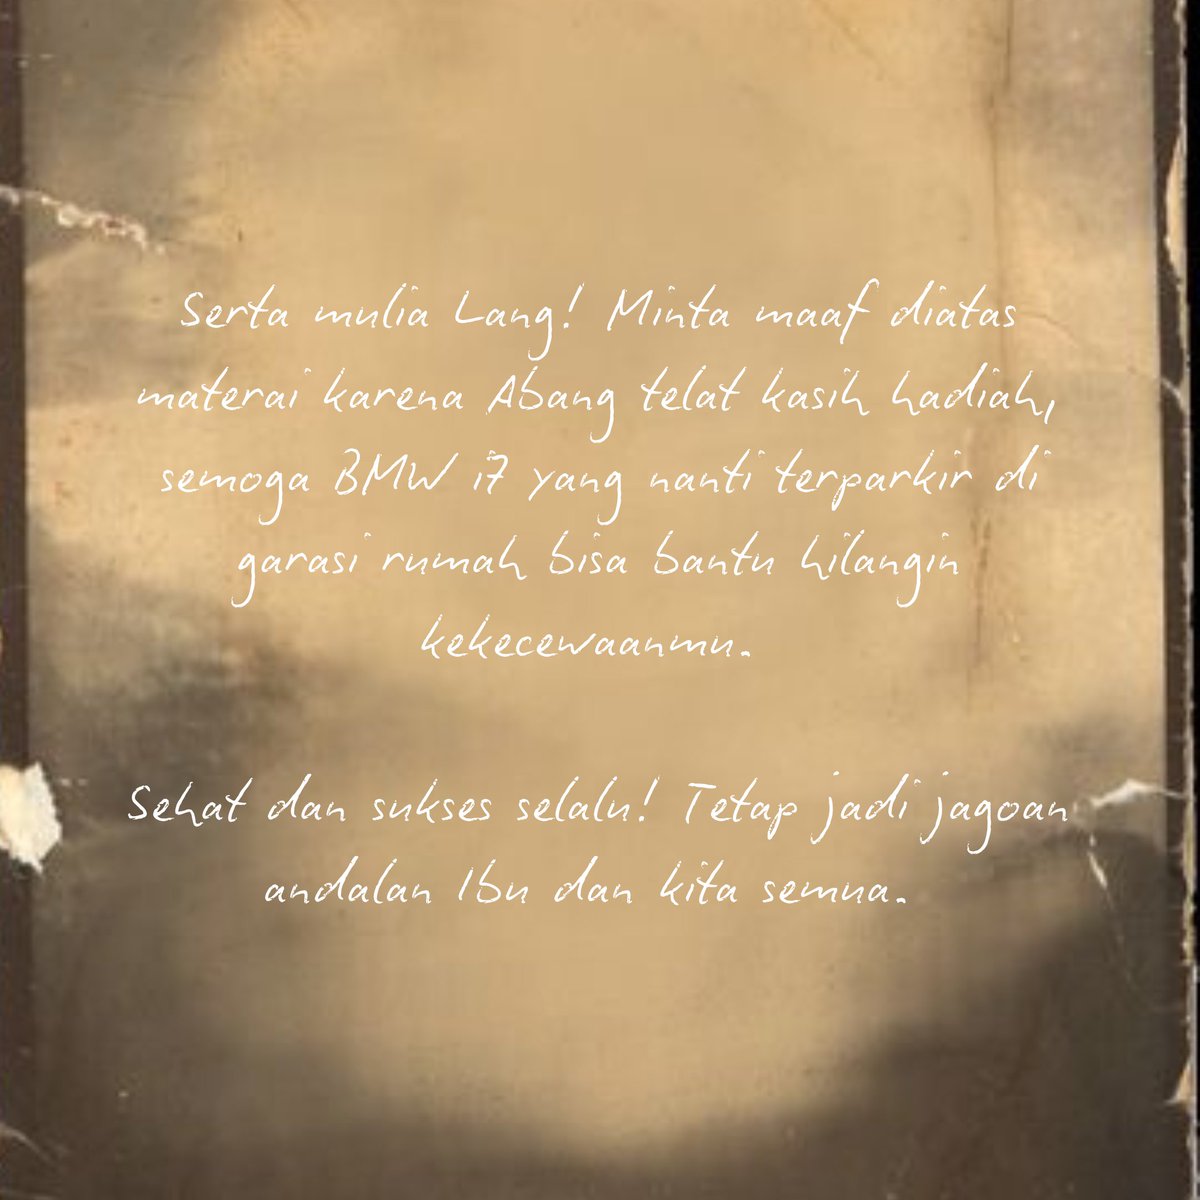 Serta mulia Lang! Minta maaf diatas
materai karena Abang telat kasih hadiah,
semoga BMW i7 yang nanti terparkir di
garasi rumah bisa bantu hilangin
kekecewaanmu.
Sehat dan sukses selalu! Tetap jadi jagoan
andalan Ibu dan kita semua.